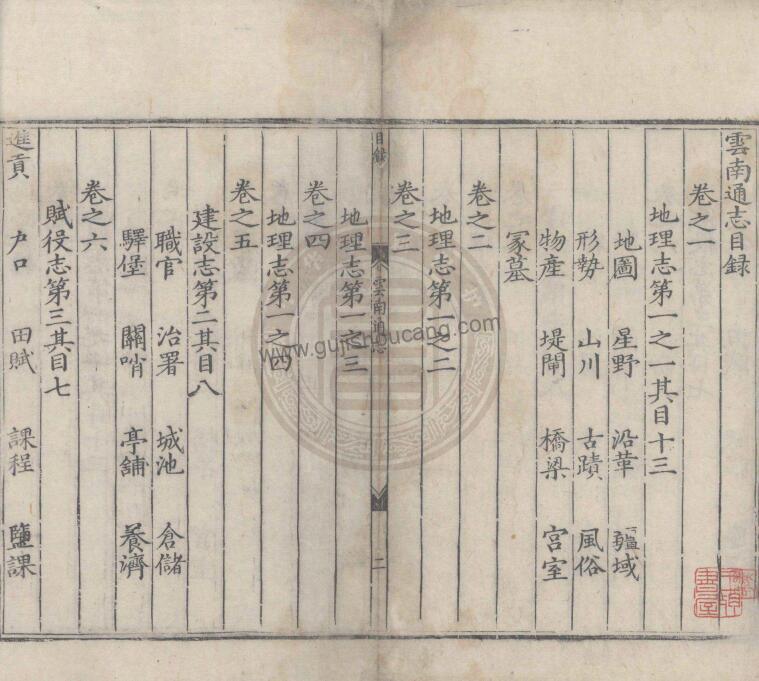 雲南通志目録
卷之一
地理志第一之一其目十三
地圖 星野 沿革 疆域
形勢 山川 古蹟 風俗
物產 堤閘 橋梁 宮室
冢墓
卷之二
地理志第一之二
卷之三
地理志第一之三
目録 雲南通志 二
卷之四
地理志第一之四
卷之五
建設志第二其目八
職官 治署 城池 倉儲
驛堡 關哨 亭鋪 養濟
卷之六
賦役志第三其目七
戶口 田賦 課程 鹽課
進貢
www.gujishoucang.com